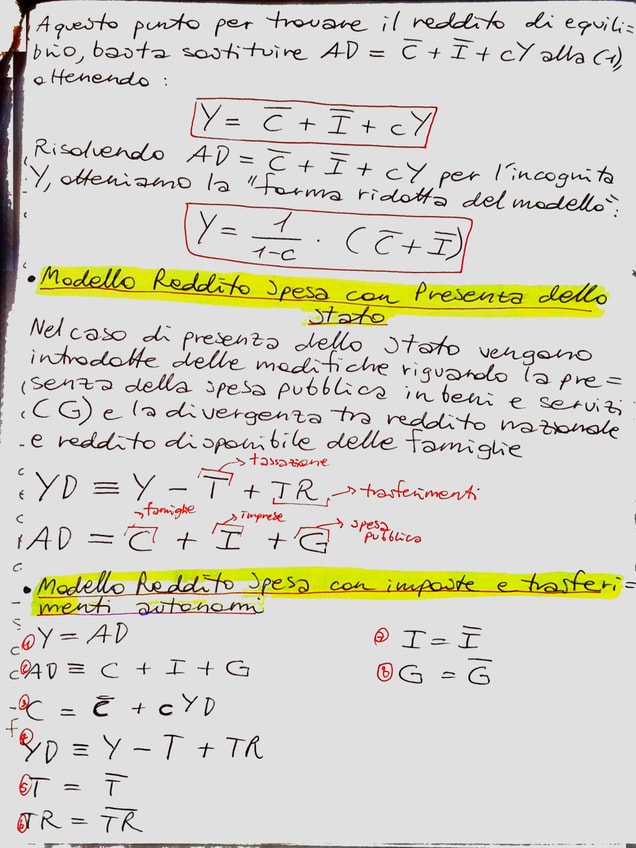 A questo punto per trovare il reddito di equili=
brio, basta sostituire AD = C̅ + I̅ + cY alla (1),
ottenendo :
Y = C̅ + I̅ + cY
Risolvendo AD = C̅ + I̅ + cY per l'incognita
Y, otteniamo la "forma ridotta del modello":
Y = 1/1-c · (C̅ + I̅)
• Modello Reddito Spesa con Presenza dello
Stato
Nel caso di presenza dello Stato vengono
introdotte delle modifiche riguardo la pre=
senza della spesa pubblica in beni e servizi
(G) e la divergenza tra reddito nazionale
e reddito disponibile delle famiglie
→ tassazione
YD ≡ Y - T + TR → trasferimenti
→ famiglie → imprese → spesa pubblica
AD = C + I + G
• Modello Reddito Spesa con imposte e trasferi=
menti autonomi
① Y = AD
② AD ≡ C + I + G
③ C = C̅ + cYD
④ YD ≡ Y - T + TR
⑤ T = T̅
⑥ TR = T̅R̅
⑦ I = I̅
⑧ G = G̅